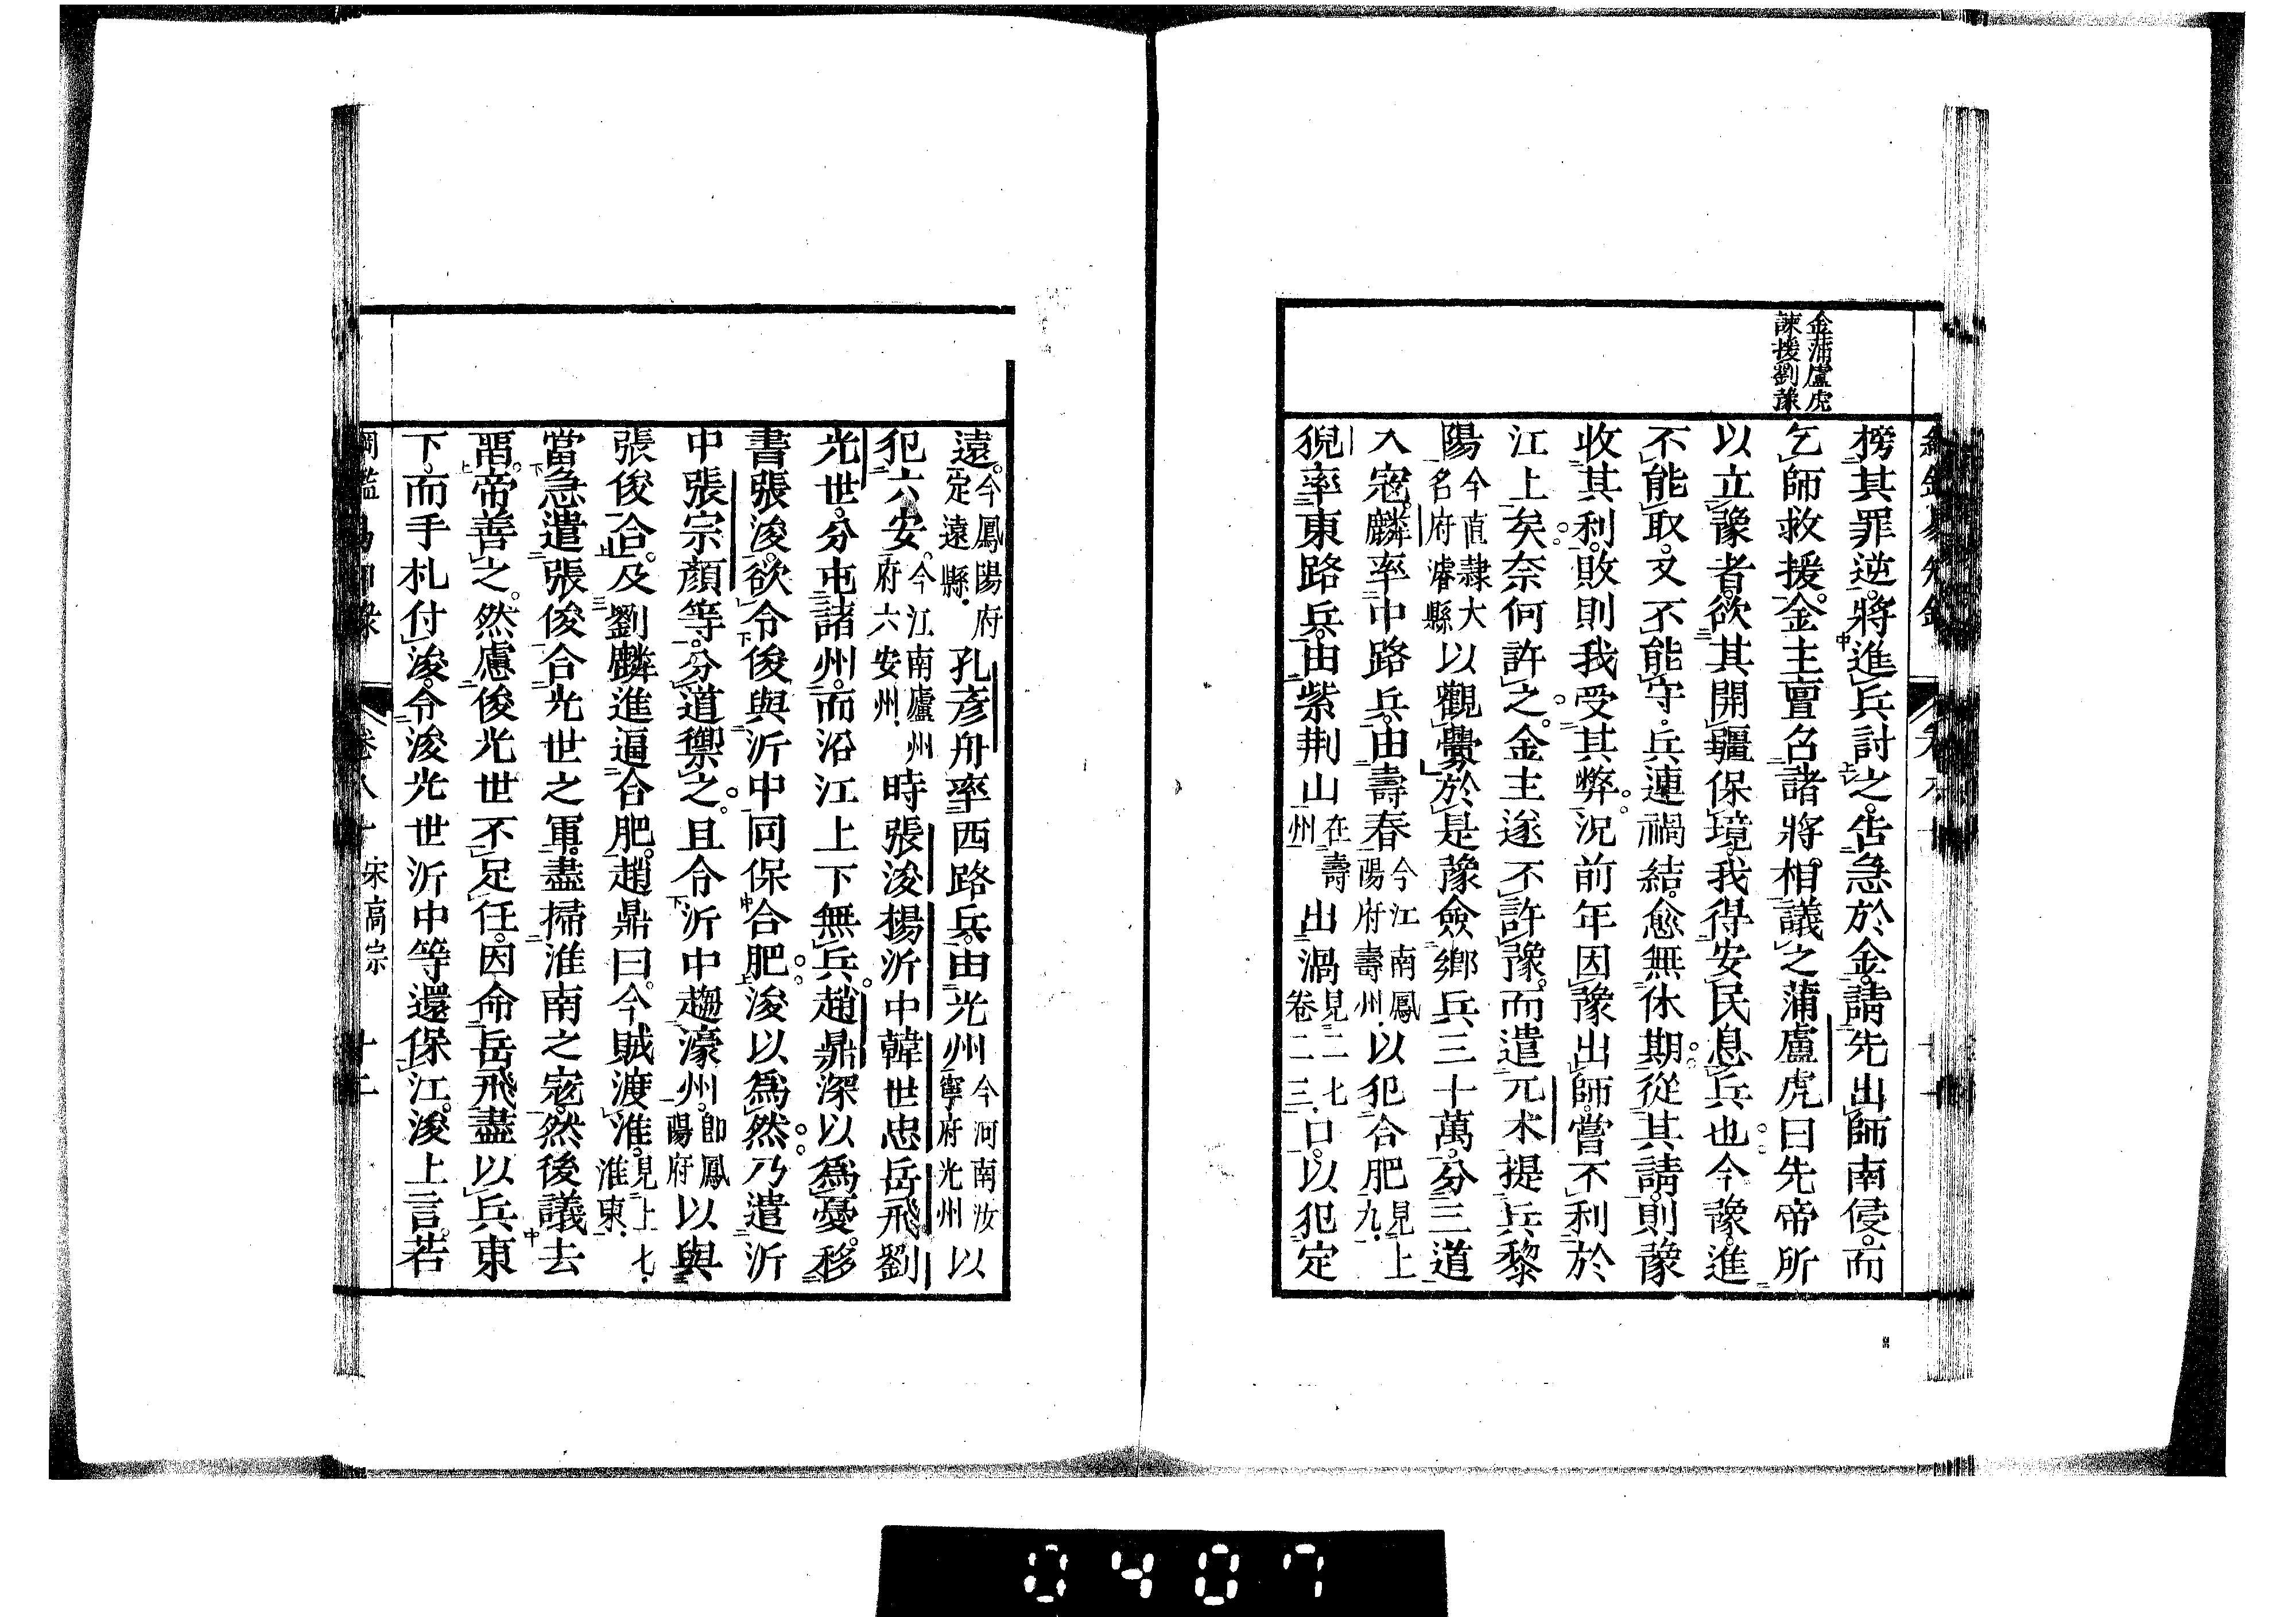 金蒲盧虎
諫援劉豫
榜其罪逆。將進兵討之。告急於金。請先出師南侵。而
乞師救援。金主亶召諸將相議之蒲盧虎曰先帝所
以立豫者。欲其開疆保境。我得安民息兵也今豫。進
不能取。又不能守。兵連禍結。愈無休期。從其請。則豫
收其利。敗則我受其弊。況前年因豫出師。嘗不利於
江上矣。奈何許之。金主遂不許豫。而遣兀朮提兵黎
陽今直隷大名府濬縣以觀釁於是豫僉鄉兵三十萬。分三道
入寇。麟率中路兵。由壽春今江南鳳陽府壽州。以犯合肥見上九。
猊率東路兵。由紫荆山在壽州出渦見二七卷二三。口。以犯定
遠。今鳳陽府定遠縣。孔彥舟率西路兵。由光州今河南汝寧府光州以
犯六安。今江南廬州府六安州。時張浚楊沂中韓世忠岳飛劉
光世。分屯諸州。而沿江上下無兵。趙鼎深以爲憂。移
書張浚。欲令俊與沂中同保合肥。浚以爲然。乃遣沂
中張宗顏等。分道禦之。且令沂中趨濠州。卽鳳陽府以與
張俊合。及劉麟進逼合肥。趙鼎曰。今賊渡淮。見上七。淮東。
當急遣張俊合光世之軍。盡掃淮南之寇。然後議去
畱。帝善之。然慮俊光世不足任。因命岳飛盡以兵東
下。而手札付浚。令浚光世沂中等還保江。浚上言。若
卷八十 宋高宗 十二
0407